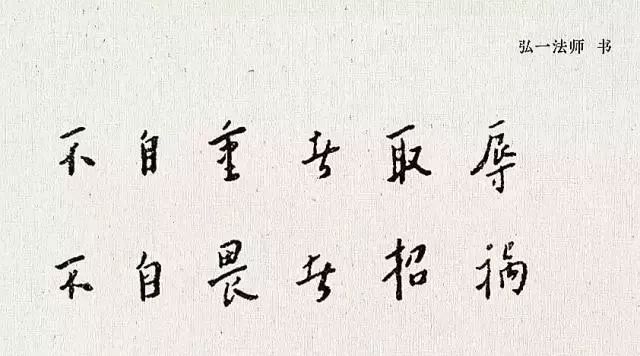 弘一法师 书
不自重者取辱
不自畏者招祸